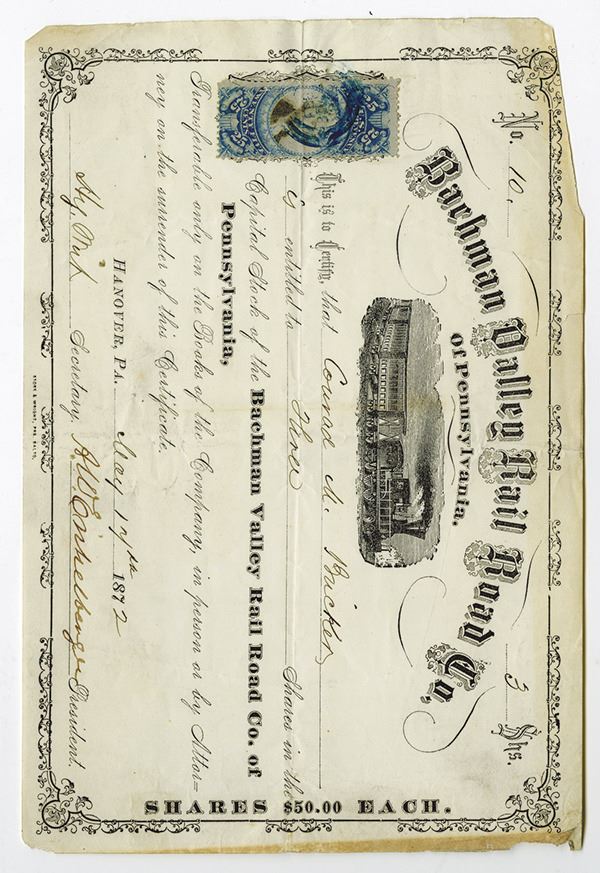 No. 10. 3 Shs.
Bachman Valley Rail Road Co.
Of Pennsylvania.
This is to Certify, that Conrad M. Bricker
is entitled to Three Shares in the
Capital Stock of the Bachman Valley Rail Road Co. of
Pennsylvania,
Transferable only on the Books of the Company, in person or by Attor=
ney on the surrender of this Certificate.
HANOVER, PA. May 17th 1872
Secretary. A W Eichelberger President.
SHARES $50.00 EACH.
25 25